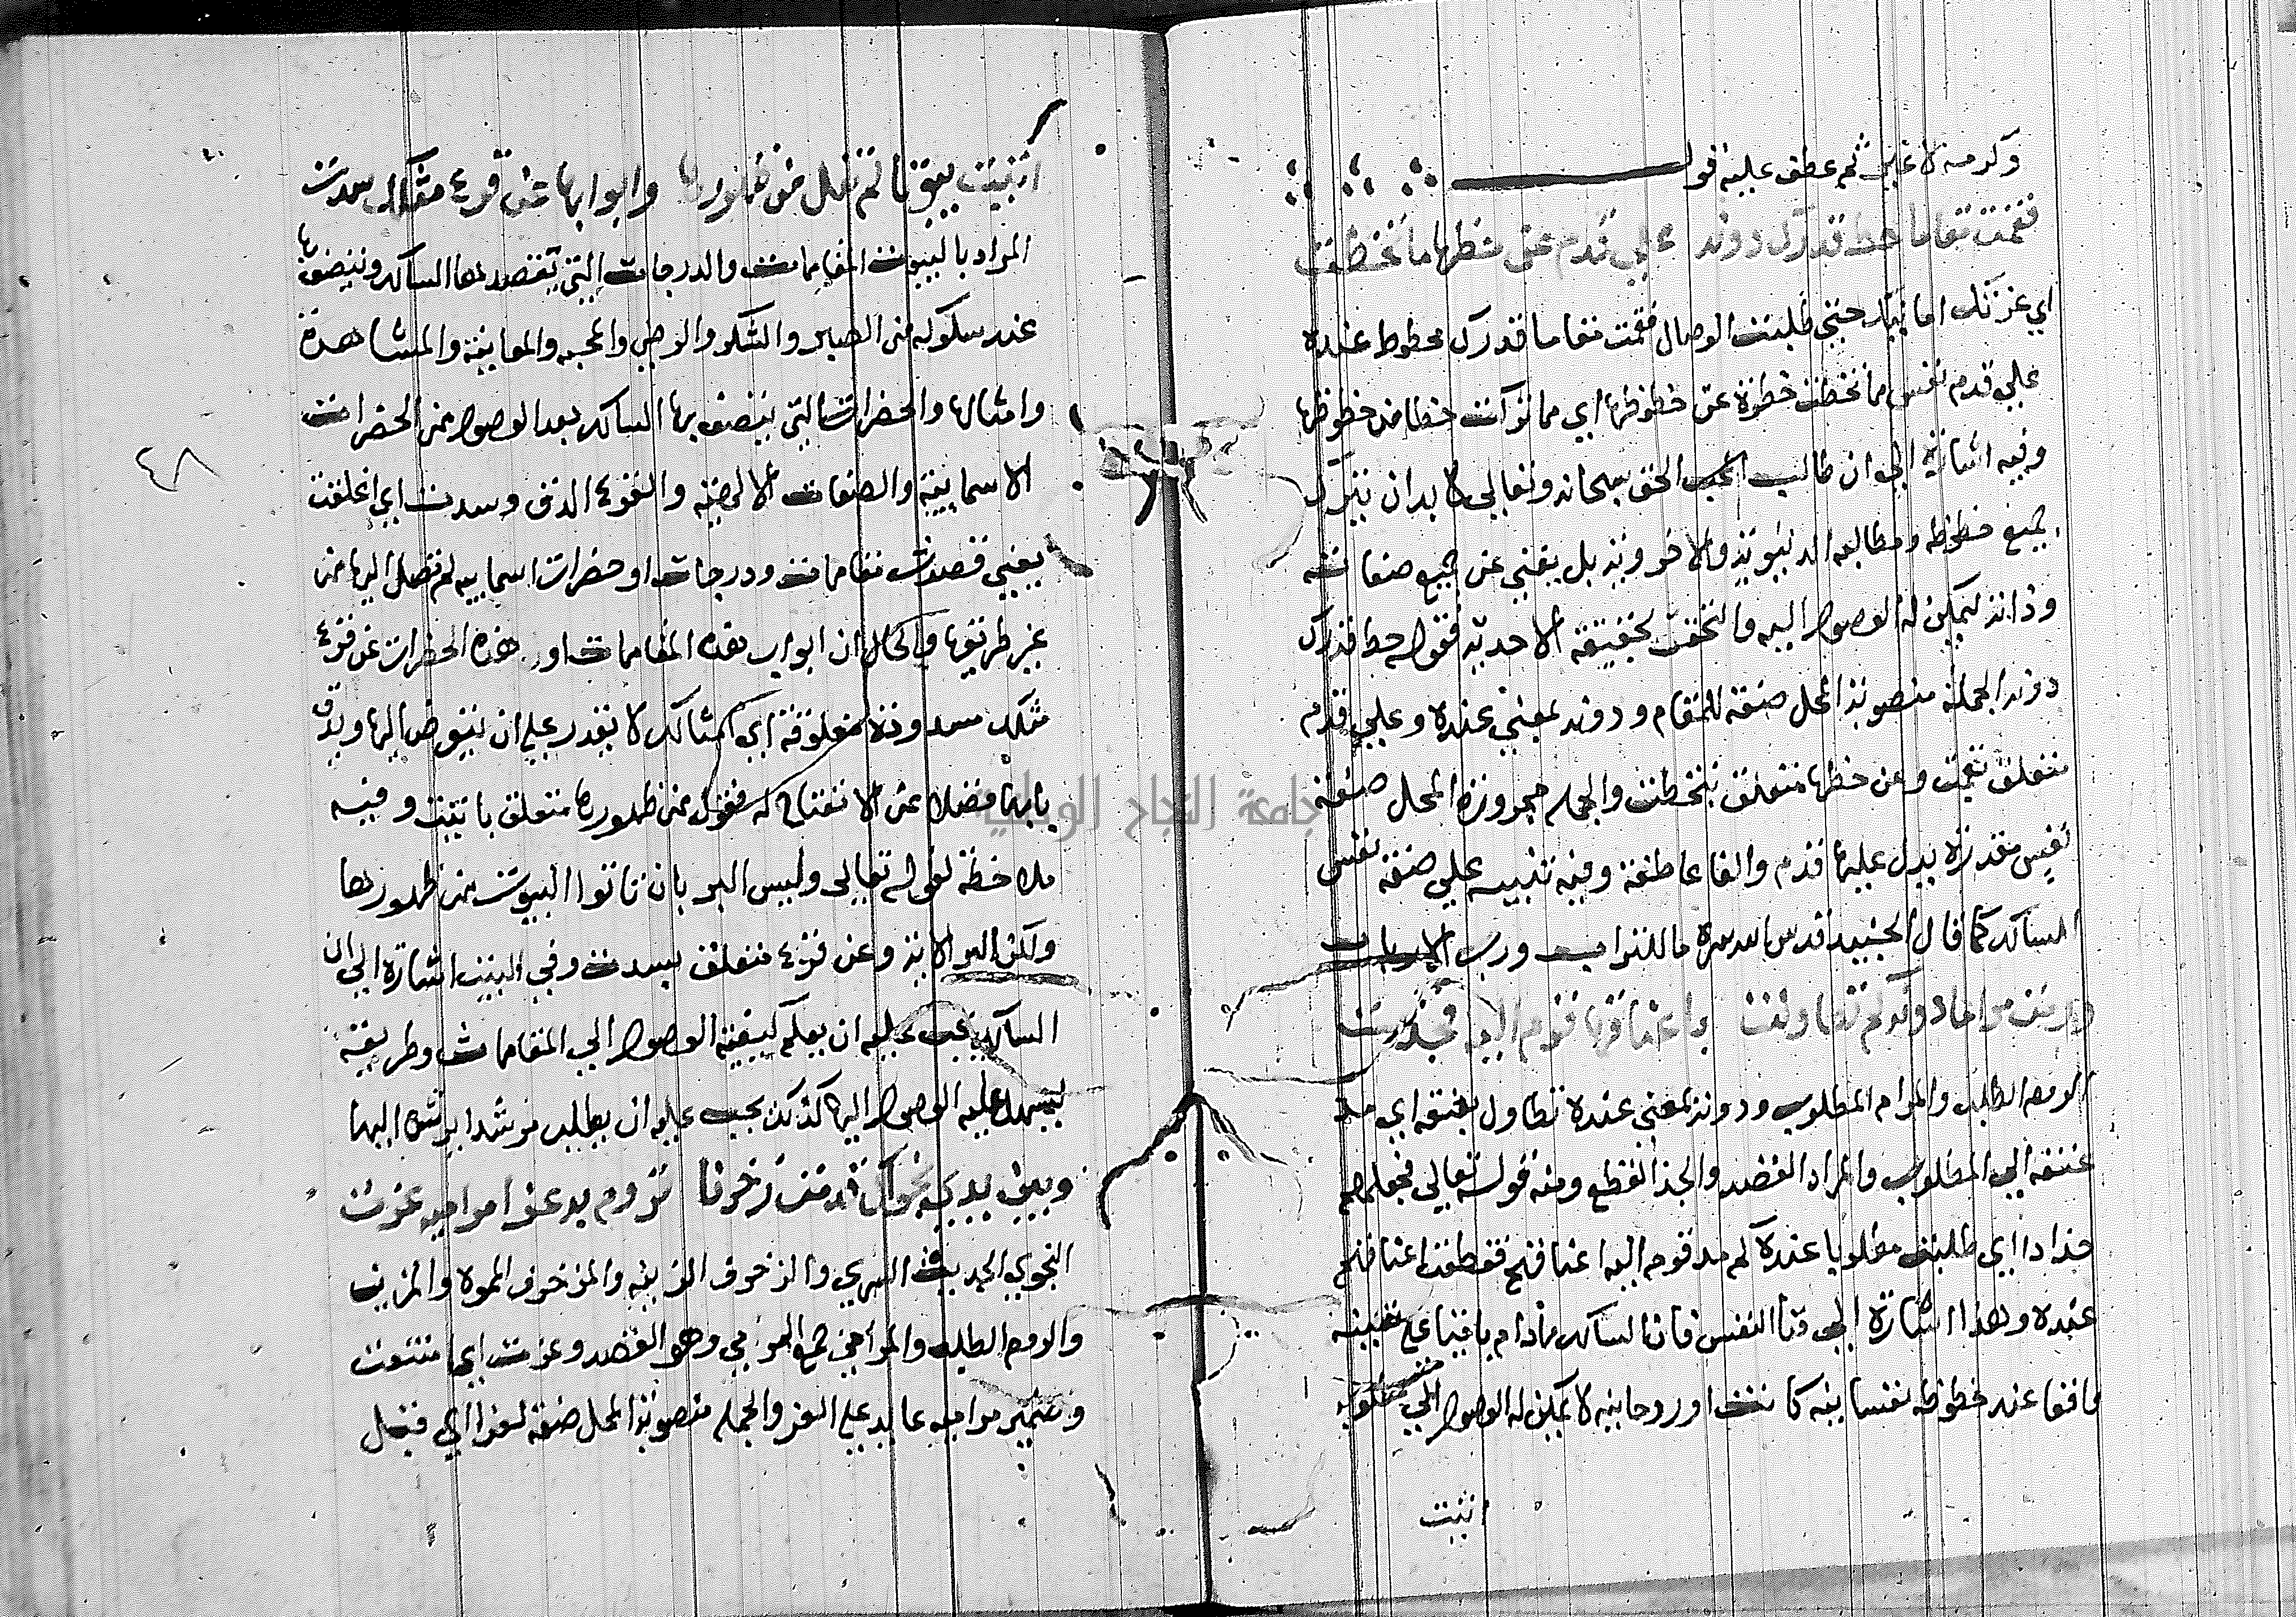 وكرمه لا غير ثم عطف عليه قوله
فقمت مقاما حط قدرك دونه على قدم عن حظها ما تخطت
اي غرتك امانيك حتى طلبت الوصال فقمت مقاما قدرك محطوط عنده
على قدم نفس ما تخطت خطوة عن حظوظها اي مما تركت حظا من حظوظها
وفيه اشارة الى ان طالب الحق سبحانه وتعالى لا بد ان يترك
جميع حظوظه ومطالبه الدنيوية والاخروية بل يفنى عن جميع صفاته
وذاته ليمكن له الوصول اليه والتحقق بحقيقة الاحدية فقوله حط قدرك
دونه الجملة منصوبة المحل صفة للمقام ودونه بمعنى عنده وعلى قدم
متعلق بقمت وعن حظها متعلق بتخطت والجملة مجرورة المحل صفة
نفس مقدرة يدل عليها قدم والفا عاطفة وفيه تنبيه على صفة نفس
السالك كما قال الجنيد قدس الله سره ما للتراب ورب الارباب
ورمت مراما دونه كم تطاولت باعناقها قوم اليه فجذت
الروم الطلب والمرام المطلوب ودونه بمعنى عنده تطاول بعنقه اي مد
عنقه الى المطلوب والمراد القصد والجذ القطع ومنه قوله تعالى فجعلهم
جذاذا اي طلبت مطلوبا عنده كم مد قوم اليه اعناقهم فقطعت اعناقهم
عنده وهذا اشارة الى فنا النفس فان السالك مادام باقيا على نفسه
واقفا عند حظوظه نفسانيه كانت او روحانيه لا يمكن له الوصول الى مطلوبه
اتيت
اتيت بيوتا لم تنل من ظهورها وابوابها عن قرع مثلك سدت
المراد بالبيوت المقامات والدرجات التي يقصدها السالك ويتصف بها
عند سلوكه من الصبر والشكر والرضى والمحبه والمعاينة والمشاهدة
وامثالها والحضرات التي يتصف بها السالك بعد الوصول من الحضرات
الاسمايية والصفات الالهية والقرع الدق وسدت اي اغلقت
يعني قصدت مقامات ودرجات او حضرات اسماييه لم تصل اليها من
غير طريقها والحال ان ابواب هذه المقامات او هذه الحضرات عن قرع
مثلك مسدودة مغلوقة اي امثالك لا يقدر على ان يتوصل اليها ويدق
بابها فضلا عن الانفتاح له فقوله من ظهورها متعلق باتيت وفيه
ملاحظة لقوله تعالى وليس البر بان تاتوا البيوت من ظهورها
ولكن البر الاية وعن قرع متعلق بسدت وفي البيت اشارة الى ان
السالك يجب عليه ان يعلم كيفية الوصول الى المقامات وطريقه
ليسهل عليه الوصول اليها كذلك يجب عليه ان يطلب مرشدا يرشده اليها
وبين يدي نجواك قدمت زخرفا تروم به عزا مراميه عزت
النجوى الحديث السري والزخرف الزينه والمزخرف المموه والمزين
والروم الطلب والمرامي جمع المرمى وهو القصد وعزت اي امتنعت
وضمير مراميه عايد على العز والجملة منصوبة المحل صفة لعزا اي قبل
٤٨
جامعة النجاح الوطنية